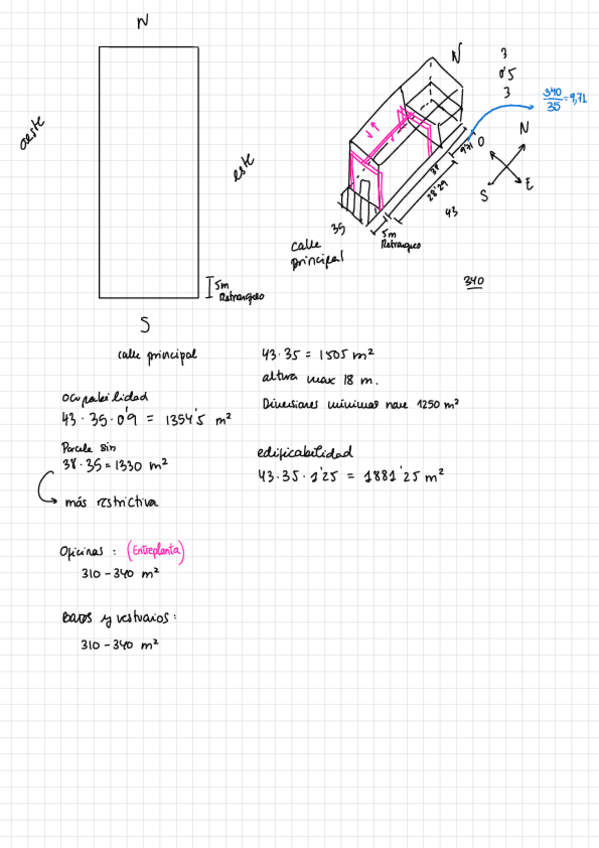 N
oeste
este
5m
Retranqueo
S
calle principal
N
3
0'5
3
340
35
=9,71
O
N
S
E
9'71
38
28'29
43
5m
Retranqueo
35
calle
principal
340
43·35 = 1505 m²
altura max 18 m.
Dimensiones mínimas nave 1250 m²
ocupabilidad
43·35·0'9 = 1354'5 m²
Parcela sin
38·35 = 1330 m²
más restrictiva
edificabilidad
43·35·1'25 = 1881'25 m²
Oficinas: (Entreplanta)
310-340 m²
Baños y vestuarios:
310-340 m²